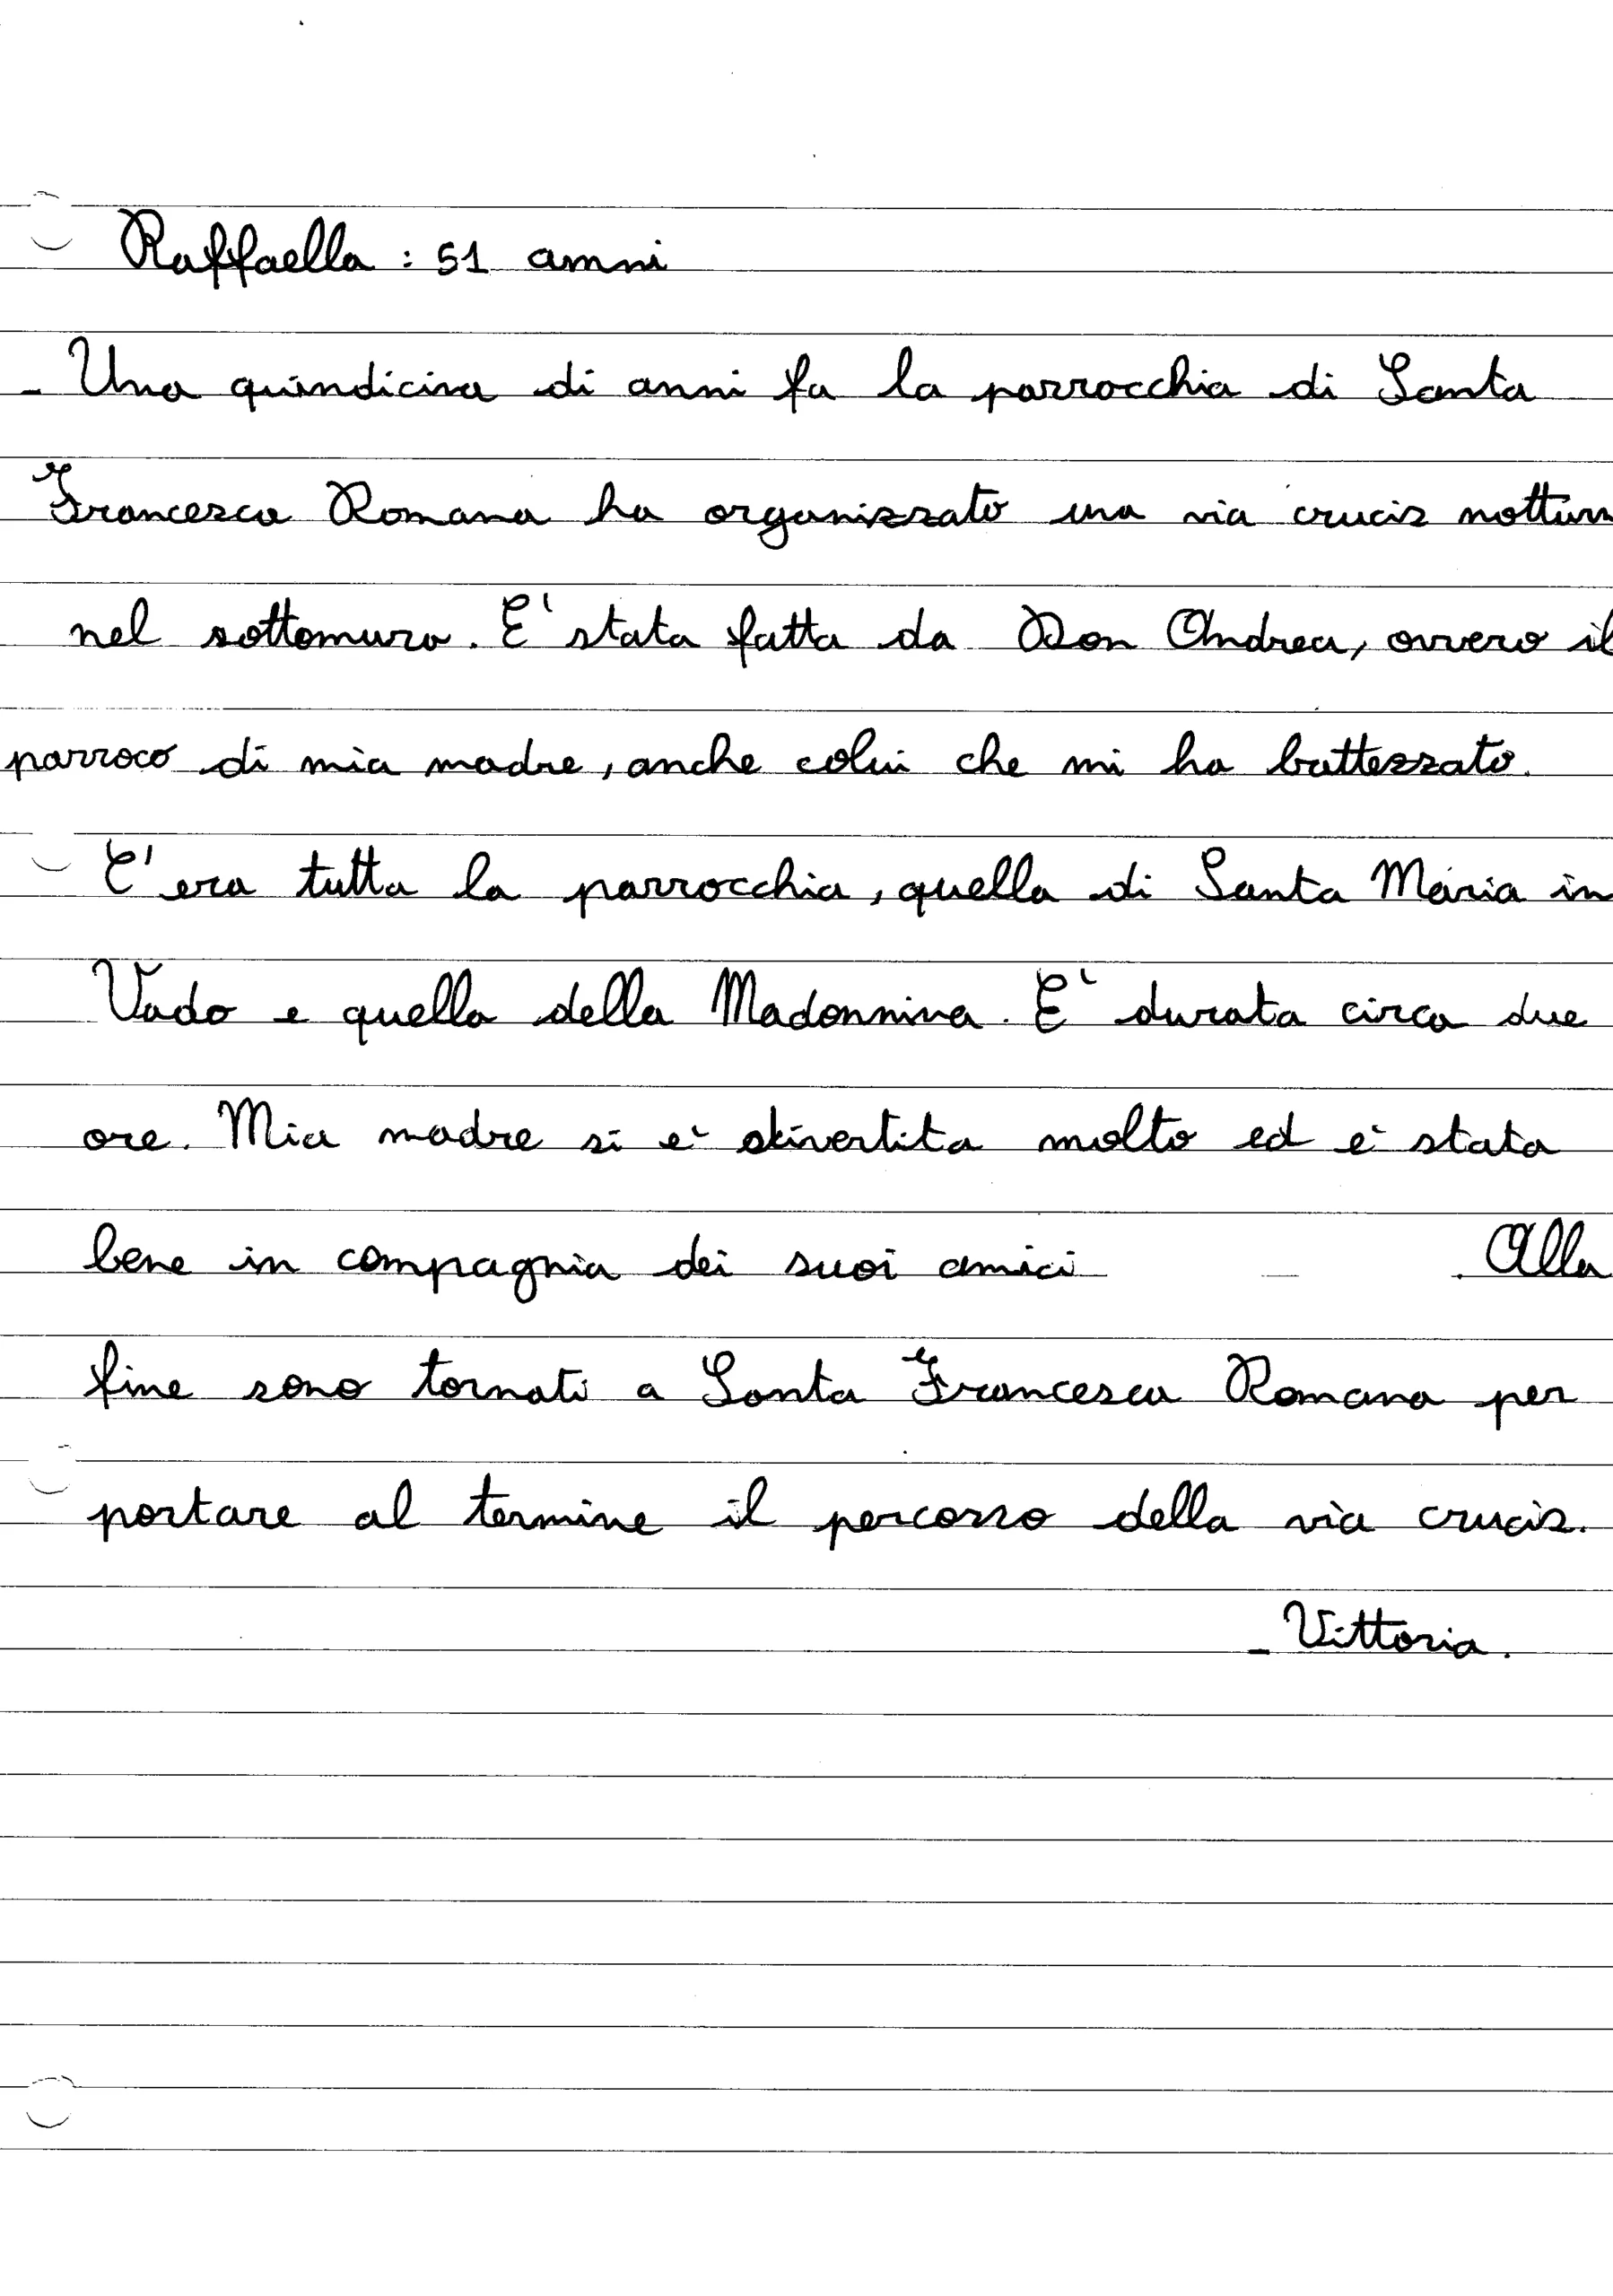 Raffaella : 51 anni
- Una quindicina di anni fa la parrocchia di Santa
Francesca Romana ha organizzato una via crucis nottur
nel sottomura. E' stata fatta da Don Andrea, ovvero il
parroco di mia madre, anche colui che mi ha battezzato.
C'era tutta la parrocchia, quella di Santa Maria in
Vado e quella della Madonnina. E' durata circa due
ore. Mia madre si è divertita molto ed è stata
bene in compagnia dei suoi amici . Alla
fine sono tornati a Santa Francesca Romana per
portare al termine il percorso della via crucis.
- Vittoria.